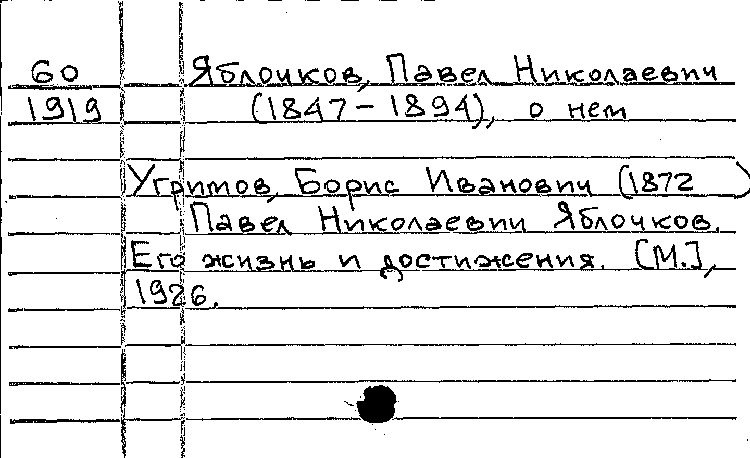 60 Яблочков, Павел Николаевич
1919 (1847-1894), о нем
Угримов, Борис Иванович (1872 )
Павел Николаевич Яблочков.
Его жизнь и достижения. [М.],
1926.